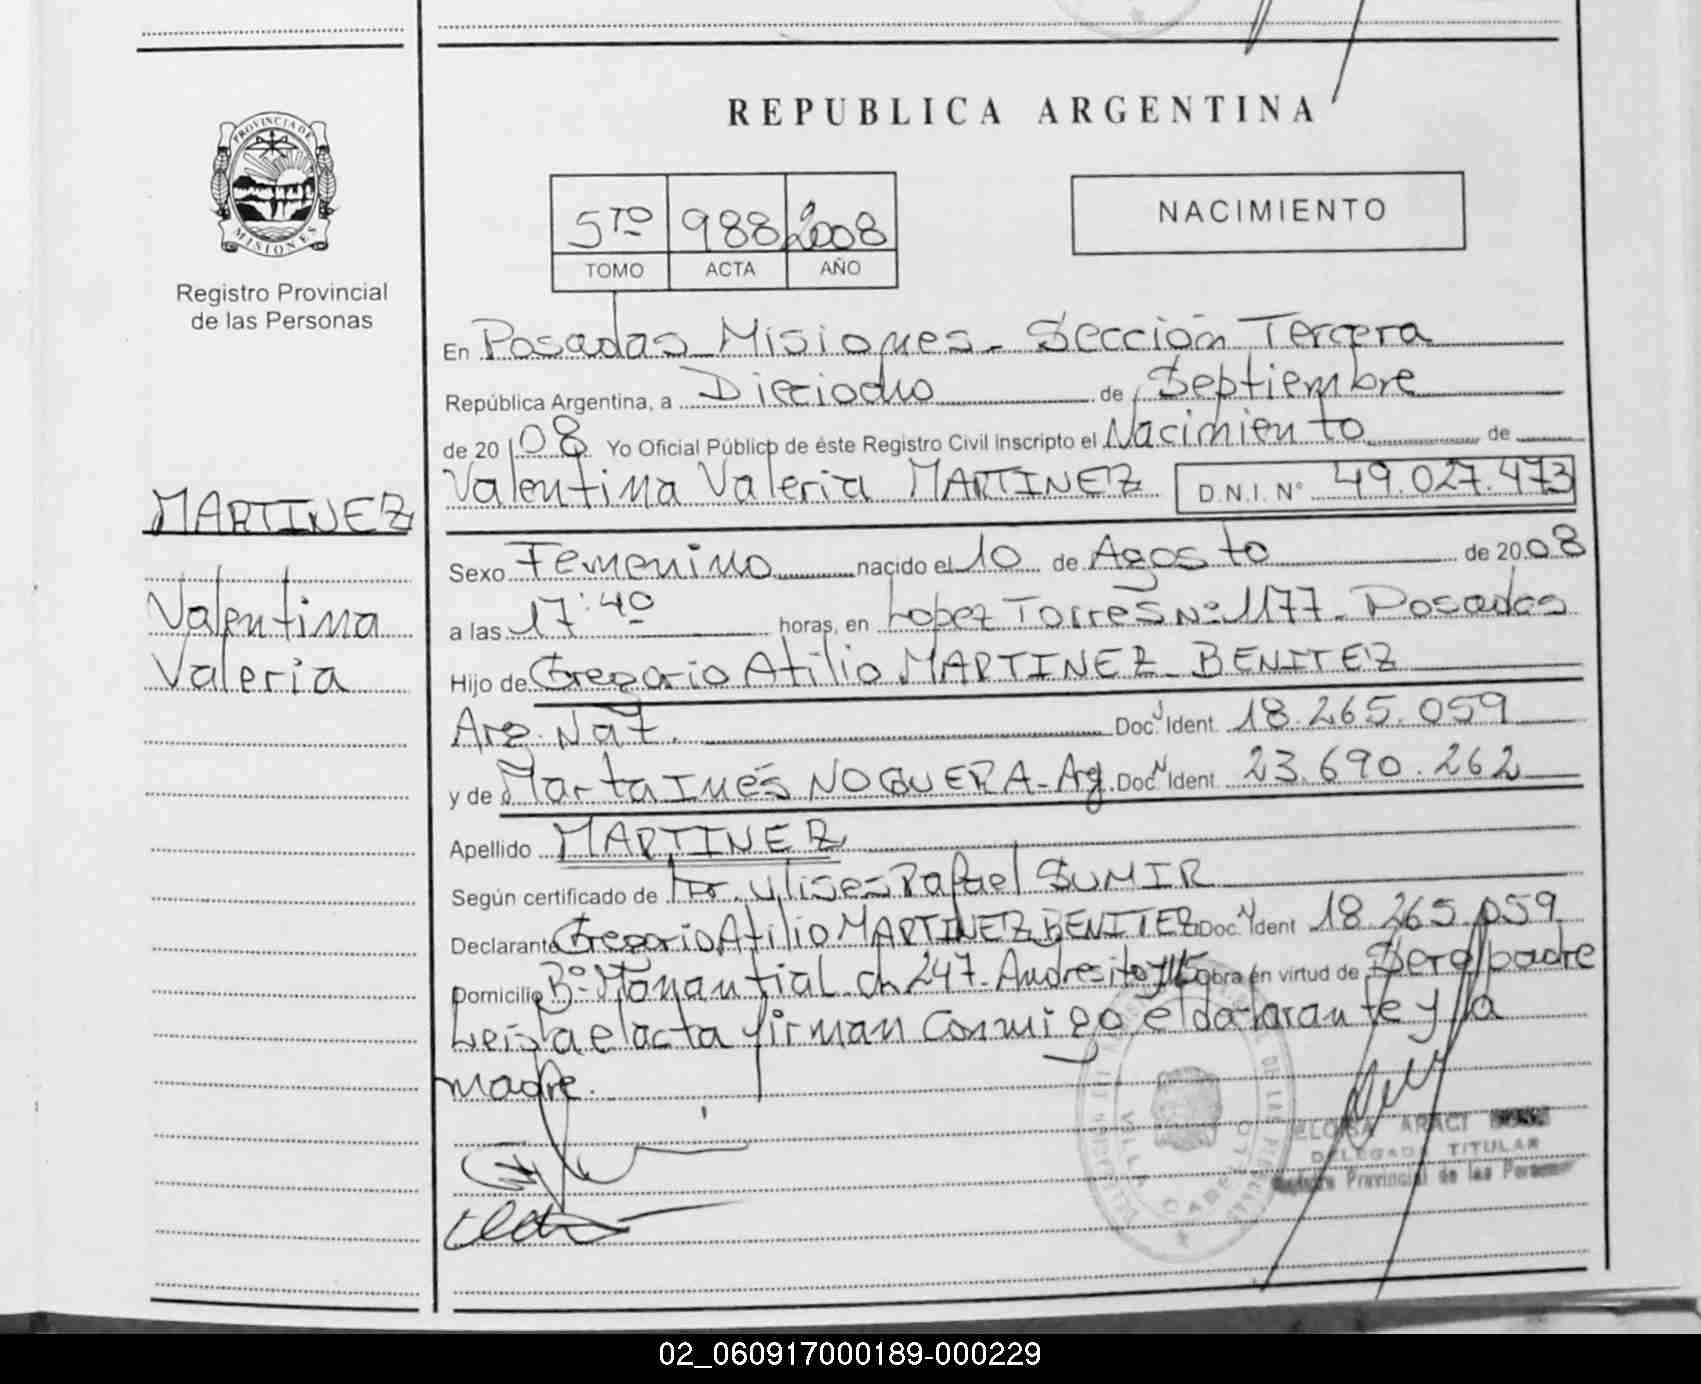 PROVINCIA DE
MISIONES
Registro Provincial
de las Personas
MARTINEZ
Valentina
Valeria
REPUBLICA ARGENTINA
5TO 988 2008
TOMO ACTA AÑO
NACIMIENTO
En Posadas Misiones - Sección Tercera
República Argentina, a Dieciocho de Septiembre
de 20 08 Yo Oficial Público de éste Registro Civil Inscripto el Nacimiento de
Valentina Valeria MARTINEZ D.N.I. Nº 49.027.473
Sexo Femenino nacido el 10 de Agosto de 20 08
a las 17:40 horas, en Lopez Torres Nº 1177 - Posadas
Hijo de Gregorio Atilio MARTINEZ BENITEZ
Arg. Nat. Doc. Ident. 18.265.059
y de Marta Inés NOGUERA - Arg. Doc. Ident. 23.690.262
Apellido MARTINEZ
Según certificado de Dr. Ulises Rafael SUMIR
Declarante Gregorio Atilio MARTINEZ BENITEZ Doc. Ident 18.265.059
Domicilio Bº Manantial ch 247 - Andresito y obra en virtud de Ser el padre
Leísta el acta firman conmigo el declarante y la
madre.
VILLA CABELLO
ELOISA ARACI
DELEGADA TITULAR
Registro Provincial de las Personas
02_060917000189-000229